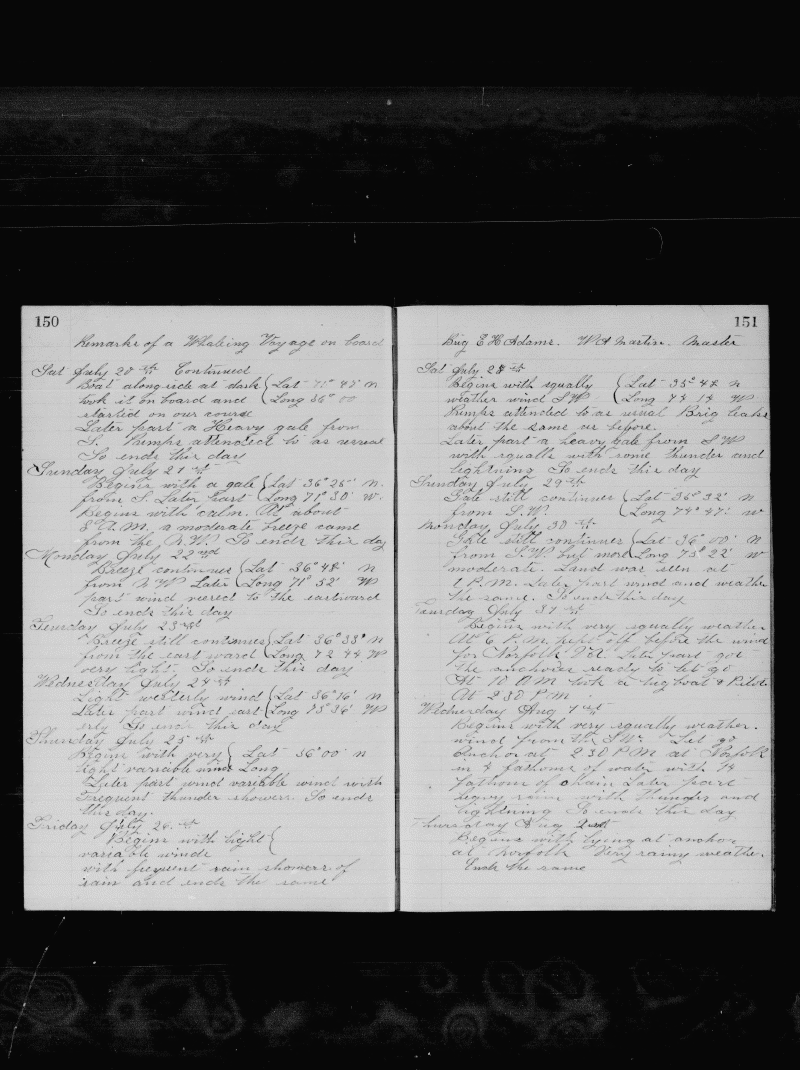 150
Remarks of a Whaleing Voyage on board
Sat July 20th Continued
Boat along side at dark { Lat 71° 47' N
took it on board and { Long 36° 00
started on our course
Later part a Heavy gale from
S. Pumps attended to as usual
So ends this day
Sunday July 21st
Begins with a gale { Lat 36° 25' N.
from S. Later Part { Long 71° 30' W.
begins with calm. At about
8 A.M. a moderate breeze came
from the N.W. So ends this day
Monday July 22nd
Breeze continues { Lat 36° 48' N
from N W Later { Long 71° 52' W
part wind veered to the eastward
So ends this day
Tuesday July 23rd
Breeze still continues { Lat 36° 33' N
from the east ward { Long 72 44 W
very light. So ends this day
Wednesday July 24th
Light westerly wind { Lat 36° 16' N
Later part wind east { Long 73° 36' W
erly So ends this day
Thursday July 25th
Begins with very { Lat 36° 00' N
light variable winds { Long
Later part wind variable wind with
Frequent thunder showers. So ends
this day.
Friday July 26th
Begins with light {
variable winds
with frequent rain showers of
rain and ends the same
151
Brig E H Adams. W A Martin. Master
Sat July 28th
Begins with squally { Lat 35° 48 N
weather wind S W { Long 74 14 W
Pumps attended to as usual Brig leaks
about the same as before.
Later part a heavy gale from S W
with squalls with some thunder and
lightning So ends this day
Sunday July 29th
Gale still continues { Lat 36° 32' N
from S.W. { Long 74° 47' W
Monday July 30th
Gale still continues { Lat 36° 00' N
from S.W but more { Long 75° 22' W
moderate. Land was seen at
1 P.M. Later part wind and weather
the same. So ends this day
Tuesday July 31st
Begins with very squally weather
At 6 P.M. kept off before the wind
for Norfolk Va. Later part got
the anchors ready to let go
At 10 A M took a tug boat & Pilot.
At 2 30 P M
Wednesday Aug 1st
Begins with very squally weather.
wind from the S W. Let go
Anchor at 2 30 P M at Norfolk
in 4 fathoms of water with 14
fathoms of chain Later part
heavy rain with thunder and
lightning So ends this day
Thursday Aug 2nd
Begins with lying at anchor
at Norfolk Very rainy weather.
Ends the same